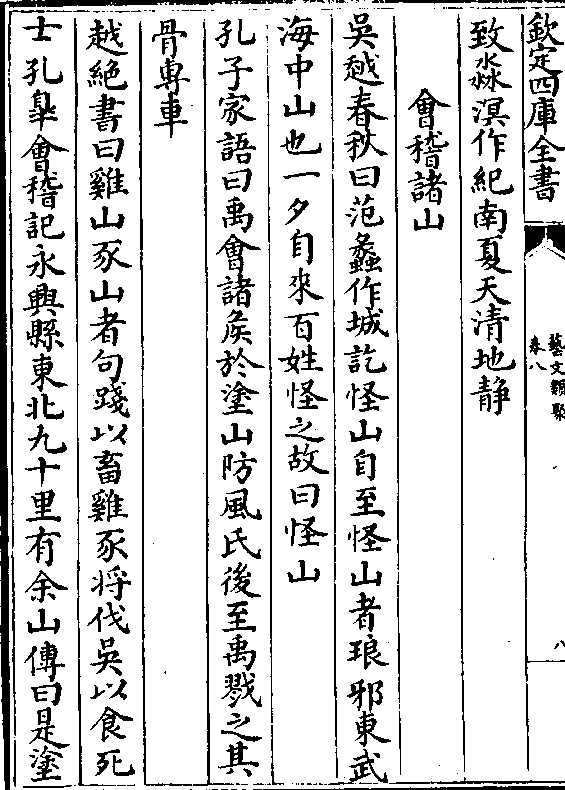 欽定四庫全書
藝文類聚
卷八
八
致淼溟作紀南夏天清地静
會稽諸山
吳越春秋曰范蠡作城訖怪山自至怪山者琅邪東武
海中山也一夕自來百姓怪之故曰怪山
孔子家語曰禹會諸矦於塗山防風氏後至禹戮之其
骨專車
越絶書曰雞山豕山者句踐以畜雞豕将伐吳以食死
士孔臯會稽記永興縣東北九十里有余山傳曰是塗